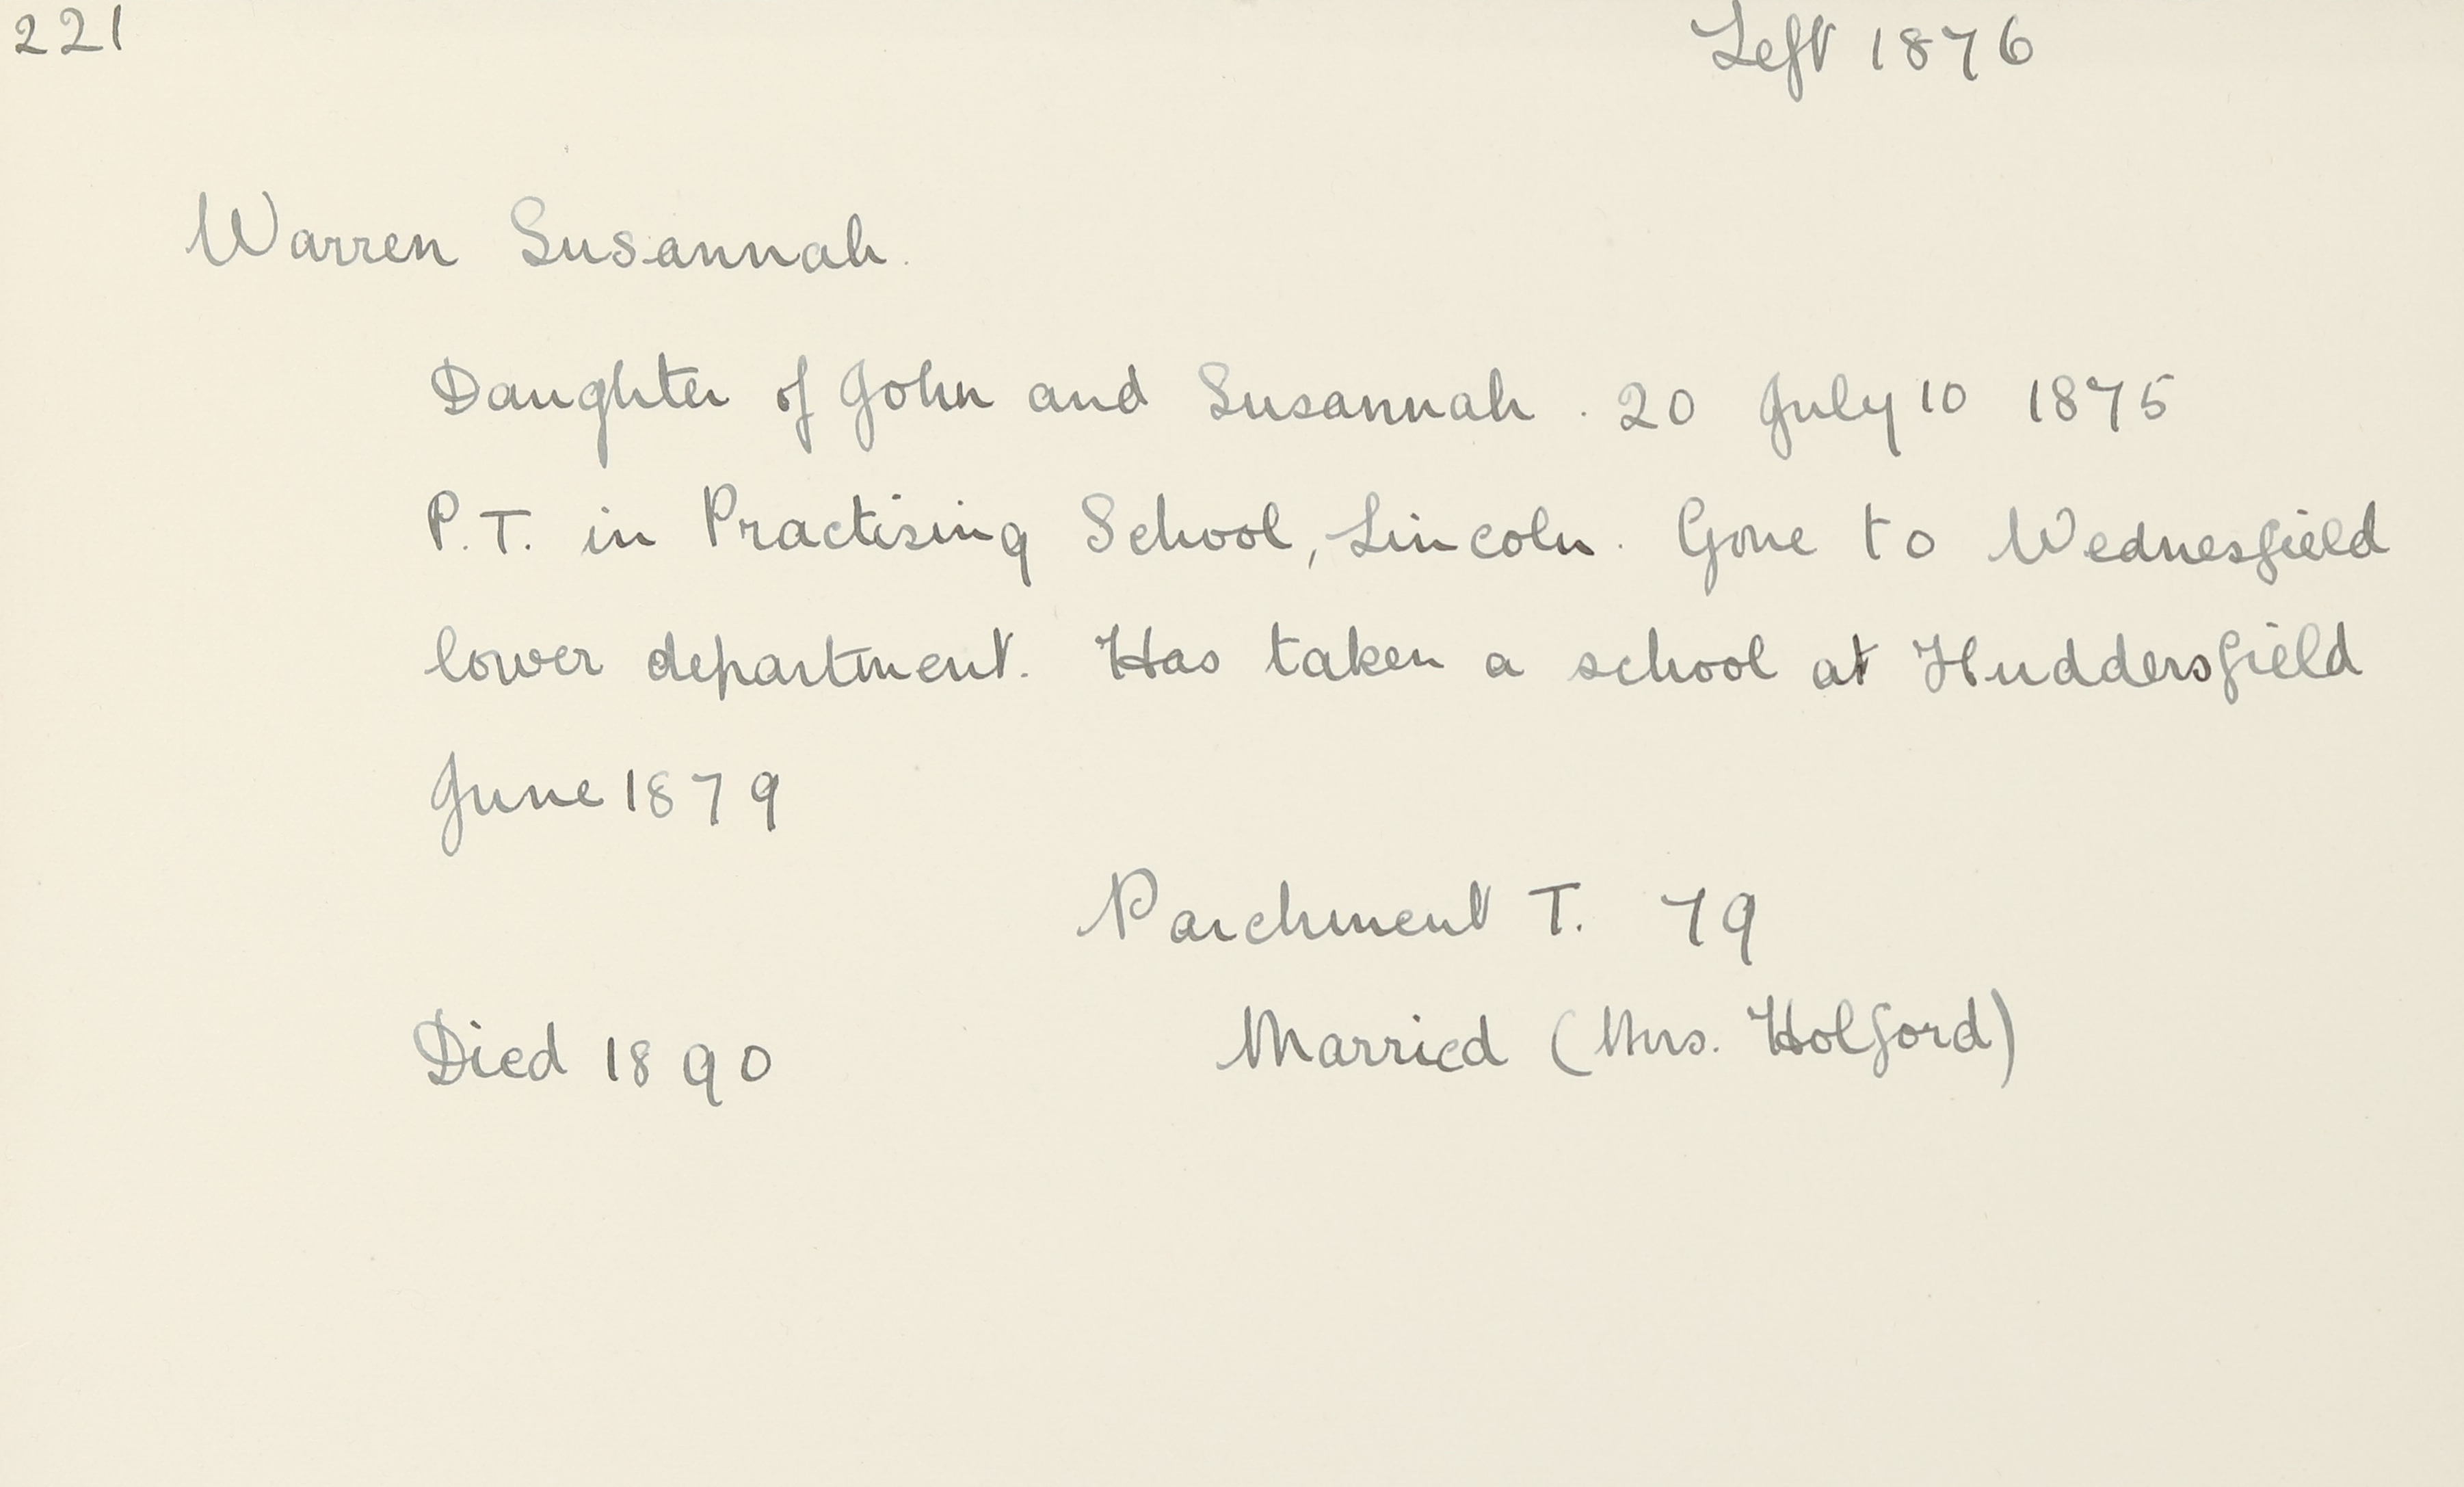 221 Left 1876
Warren Susannah.
Daughter of John and Susannah. 20 July 10 1875
P.T. in Practising School, Lincoln. Gone to Wednesfield
lower department. Has taken a school at Huddersfield
June 1879
Parchment T. 79
Died 1890 Married (Mrs. Holford)